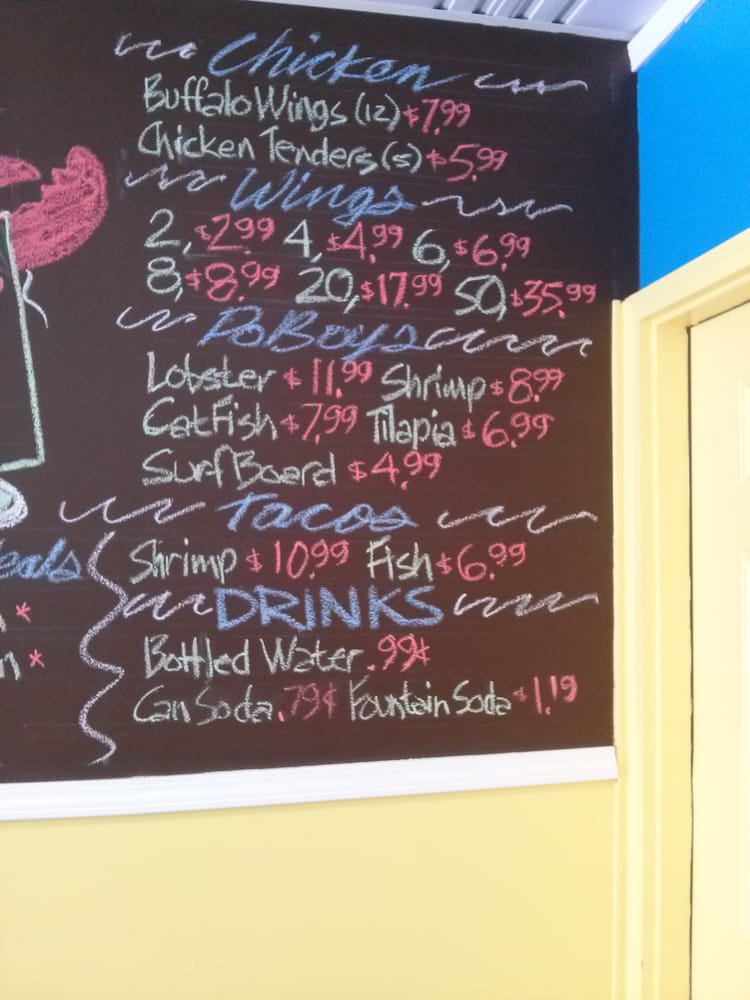 Chicken
Buffalo Wings (12) $7.99
Chicken Tenders (5) $5.99
Wings
2, $2.99 4, $4.99 6, $6.99
8, $8.99 20, $17.99 50, $35.99
PoBoys
Lobster $11.99 Shrimp $8.99
CatFish $7.99 Tilapia $6.99
SurfBoard $4.99
Tacos
Shrimp $10.99 Fish $6.99
DRINKS
Bottled Water .99¢
Can Soda .79¢ Fountain Soda $1.19